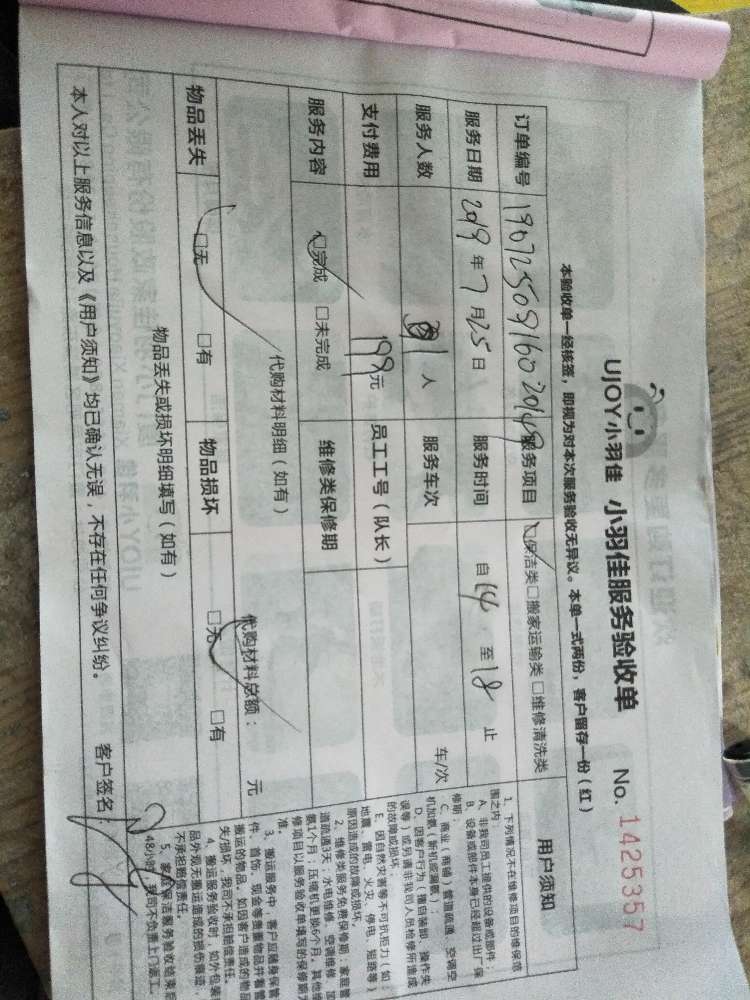 UJOY小羽佳 小羽佳服务验收单 No. 1425357
本验收单一经核签，即视为对本次服务验收无异议。本单一式两份，客户留存一份（红）
订单编号 服务项目 □保洁类□搬家运输类□维修清洗类
服务日期 2019 年 7 月 25 日 服务时间 自 14 至 18 止
服务人数 1 人 服务车次 车/次
支付费用 199 元 员工工号（队长）
服务内容 □完成 □未完成 维修类保修期
代购材料明细（如有） 代购材料总额： 元
物品丢失 □无 □有 物品损坏 □无 □有
物品丢失或损坏明细填写（如有）
本人对以上服务信息以及《用户须知》均已确认无误，不存在任何争议纠纷。 客户签名：
用户须知
1、下列情况不在维修项目的维保范
围之内：
A、非我司员工提供的设备或部件；
B、设备或部件本身已经超过出厂保
修期；
C、商业（商铺）管道疏通、空调空
机加氨（新机或漏氨）；
D、因客户行为（擅自装卸、操作失
误等）或另请非我司人员检修所造成
的故障或损坏；
E、因自然灾害等不可抗拒力（如：
地震、雷电、火灾、停电、短路等）
原因造成的故障或损坏。
2、维修类服务免费保修期：家庭管
道疏通3天；水电维修、空调维修、加
氨1个月；压缩机更换6个月。其他维
修项目以服务验收单填写的保修期为
准。
3、搬运服务中，客户应随身保管
件、首饰、现金等贵重物品并看管
搬运的物品。如因客户造成的物品
失/损坏，我司不承担赔偿责任。
4、搬运服务验收时，如外包装
品外观无搬运造成的损伤痕迹，
不承担赔偿责任。
5、家庭保洁服务验收结束后
48小时，我司不负责上门返工。